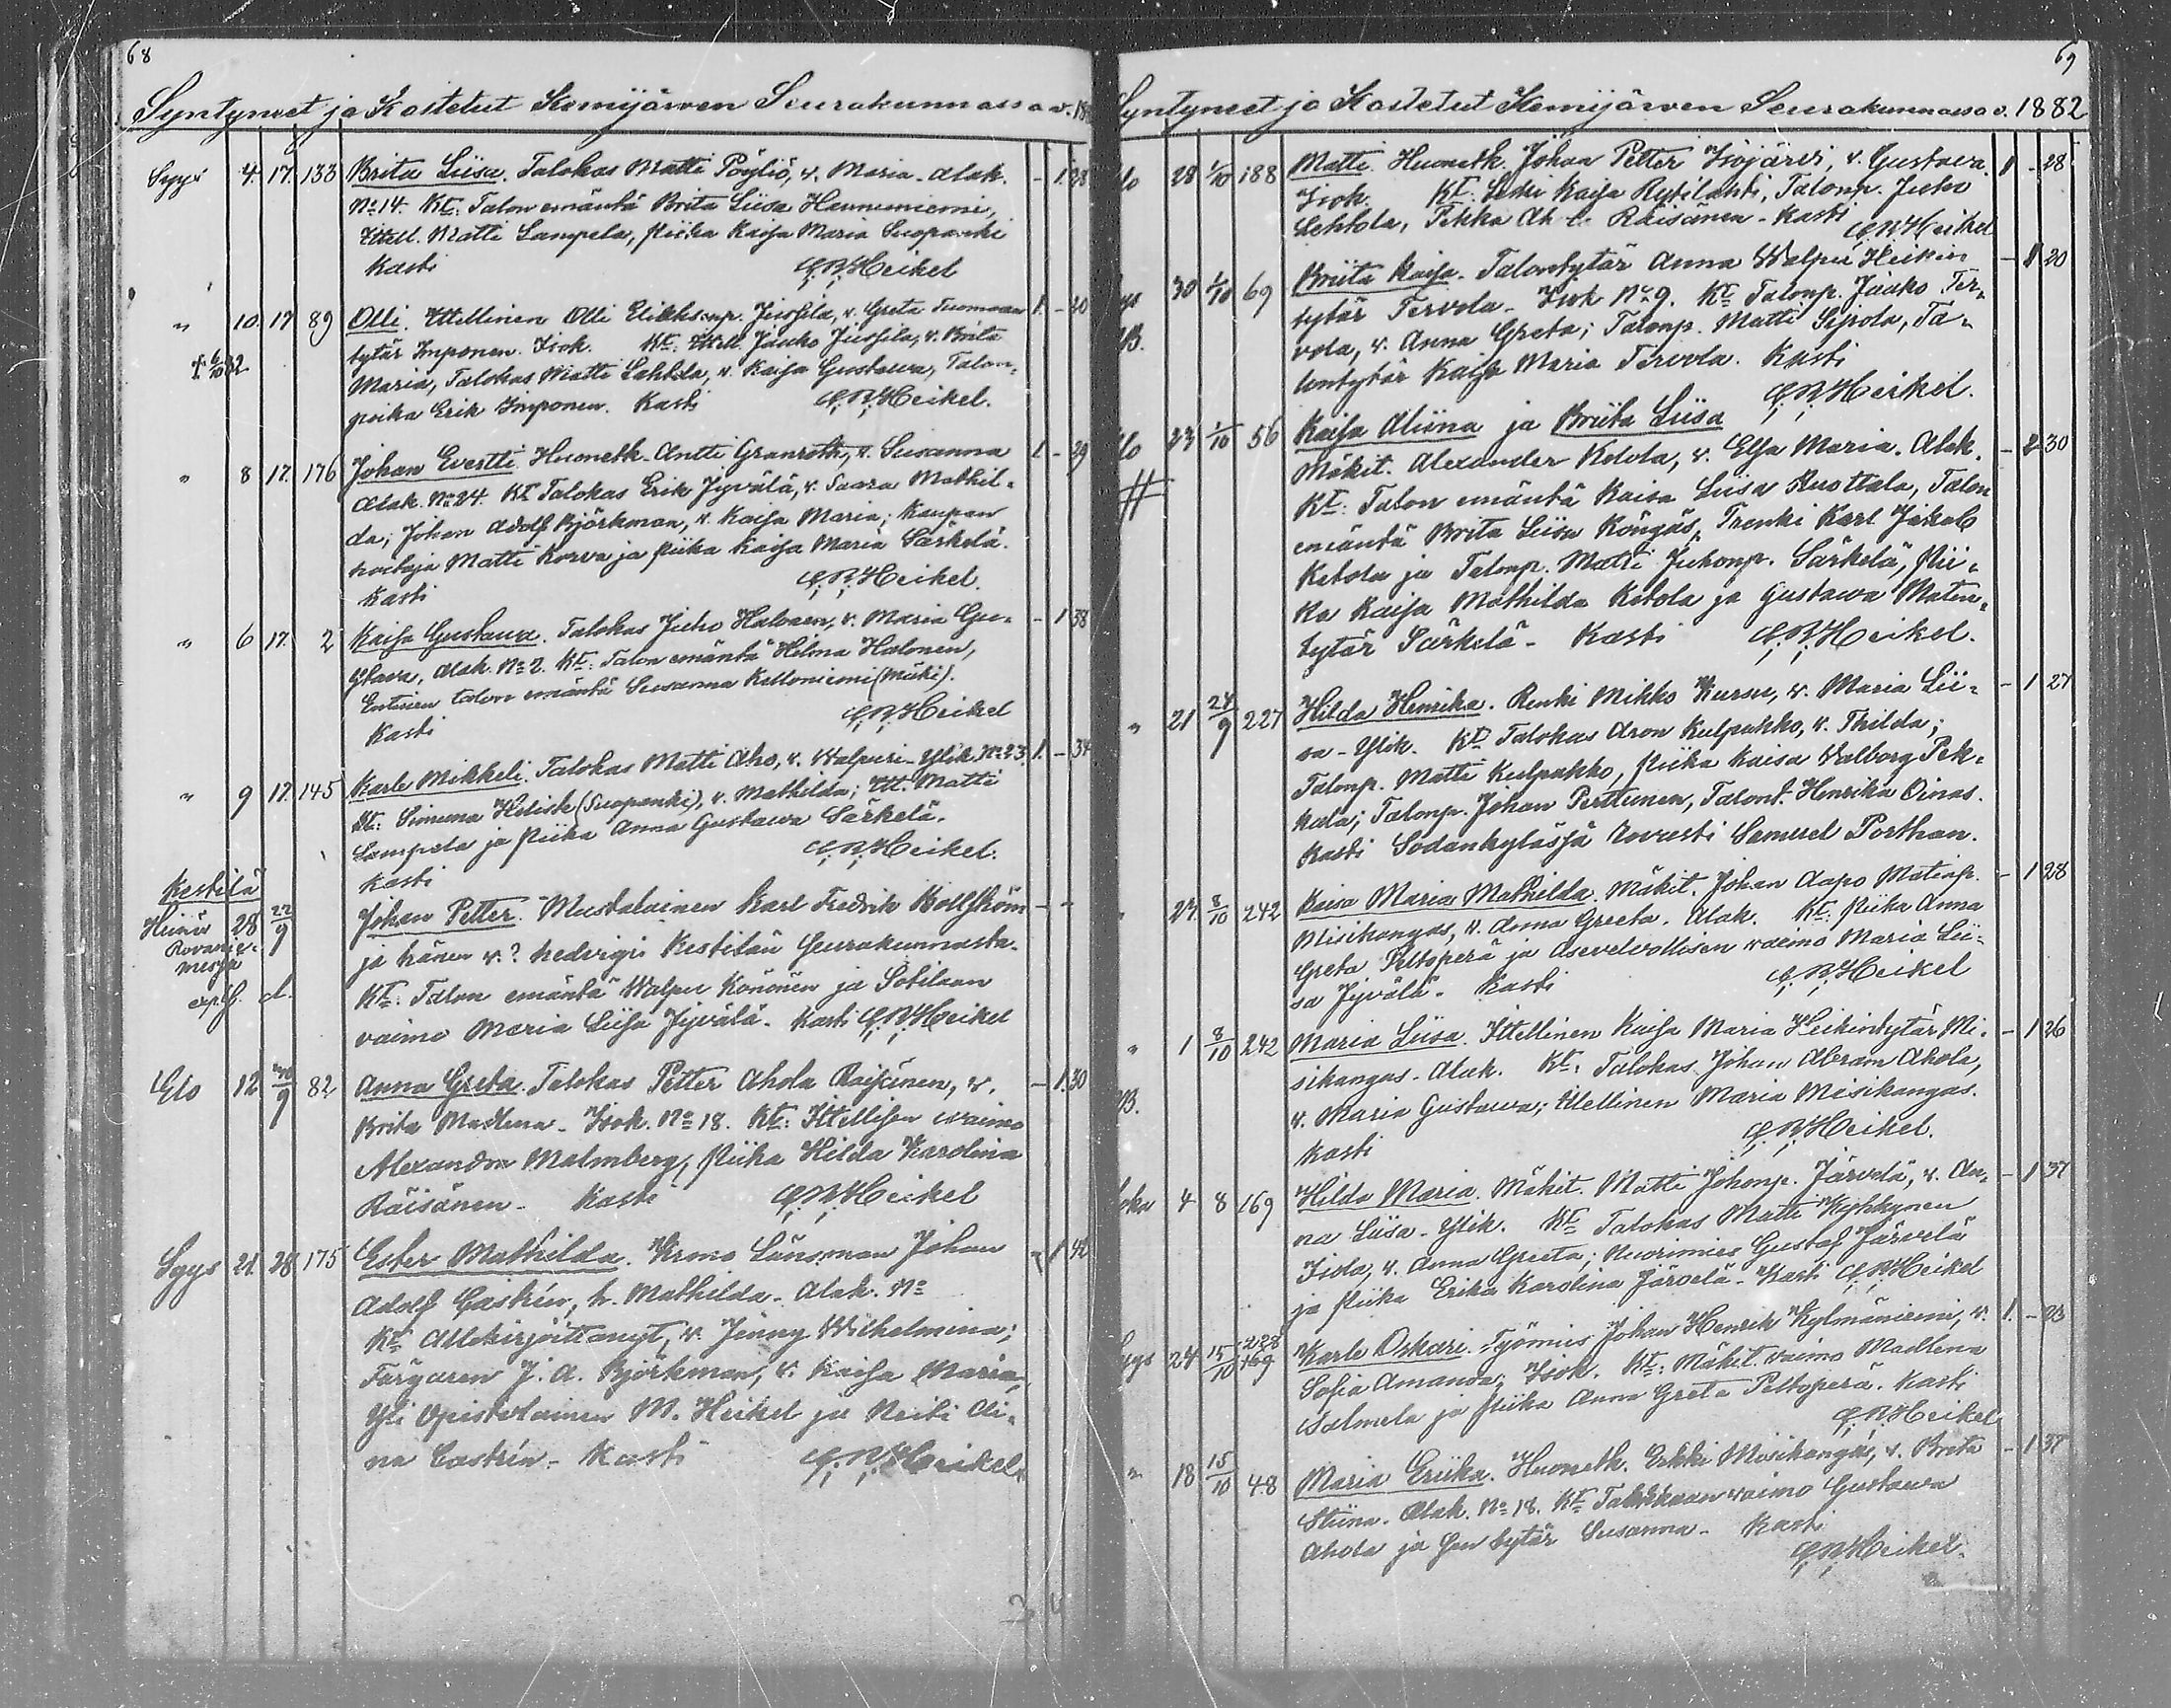 68
Syntyneet ja Kastetut Kemijärven Seurakunnassa v. 18
Syys 4. 17. 133 Brita Liisa. Talokas Matti Pöyliö, v. Maria - Alak. - 1. 28
No 14. Kt: Talon emäntä Brita Liisa Hannuniemi,
Ittell. Matti Lampela, Piika Kaisa Maria Suopanki
Kasti C. R. Heikel
" 10. 17 89 Olli. Ittellinen Olli Erikinp. Jussila, v. Greta Tuomaan 1. - 40
† 6/10 82 tytär Imponen. Isok. Kt: Ittell. Jaako Jussila, v. Brita
Maria, Talokas Matti Lehtola, v. Kaisa Gustava, Talon-
poika Erik Imponen. Kasti C. R. Heikel.
" 8 17. 176 Johan Evertti. Huoneth. Antti Granroth, v. Susanna 1 - 29
Alak. No 24. Kt Talokas Erik Jyvälä, v. Saara Mathil-
da; Johan Adolf Björkman, v. Kaisa Maria; Kaupan
hoitaja Matti Korva ja Piika Kaisa Maria Särkelä.
Kasti C. R. Heikel.
" 6 17. 2 Kaisa Gustava. Talokas Juho Halonen, v. Maria Gu- - 1 38
stava, Alak. No 2. Kt: Talon emäntä Hilma Halonen,
Entinen talon emäntä Susanna Kelloniemi (Mäki).
Kasti C. R. Heikel
" 9 17. 145 Karle Mikkeli. Talokas Matti Aho, v. Walpuri - Ylik. No 23. 1. - 34
Kt: Simuna Heliste (Suopanki), v. Mathilda; Itt. Matti
Lampela ja Piika Anna Gustawa Särkelä.
Kasti C. R. Heikel.
Kestilä
Heinä 28 22/9 Johan Petter. Mustalainen Karl Fredrik - -
Rovanie- ja hänen v.? hedvigi Kestilän Seurakunnasta.
mesjä
Kt: Talon emäntä Walpu Könönen ja Sotilaan
vaimo Maria Liisa Jyvälä. Kasti C. R. Heikel
Elo 12 /9 82 Anna Greta. Talokas Petter Ahola Räisänen, v. - 1. 30
Brita Madlena - Isok. No 18. Kt: Ittellisen vaimo
Alexandra Malmberg, Piika Hilda Karolina
Räisänen. Kasti C. R. Heikel
Syys 21. 28 175 Ester Mathilda. Krono Länsman Johan - 1 42
Adolf Castrén, h. Mathilda. Alak. No
Kt Allekirjoittanyt, v. Jenny Wilhelmina;
Färgaren J. A. Björkman, v. Kaisa Maria,
Yli Opistolainen M. Heikel ja Neiti Ai-
na Castrén - Kasti C. R. Heikel
69
Syntyneet ja Kastetut Kemijärven Seurakunnassa v. 1882
lo 28 1/10 188 Matti. Huoneth. Johan Petter Isojärvi, v. Gustava. 1 - 28
Isok. Kt: Leski Kaisa Rytilahti, Talonp. Juho
Lehtola, Pekka Räisänen - Kasti C. R. Heikel
ys 30 1/10 69 Briita Kaisa. Talontytär Anna Walpu Heikin - 1 20
B. tytär Tervola - Isok No 9. Kt Talonp. Jaako Ter-
vola, v. Anna Greta; Talonp. Matti Syrola, Ta-
lontytär Kaisa Maria Tervola. Kasti
C. R. Heikel.
lo 23 1/10 56 Kaisa Aliina ja Briita Liisa
Mäkit. Alexander Ketola, v. Elsa Maria. Alak. - 2 30
Kt: Talon emäntä Kaisa Liisa Ruottala, Talon
emäntä Brita Liisa Köngäs, Trenki Karl Jakob
Ketola ja Talonp. Matti Juhonp. Särkelä, Pii-
ka Kaisa Mathilda Ketola ja Gustawa Matin-
tytär Särkelä - Kasti C. R. Heikel.
" 21 24/9 227 Hilda Henrika. Renki Mikko Kursu, v. Maria Lii- - 1 27
sa - Ylik. Kt Talokas Aron Kulpakko, v. Thilda;
Talonp. Matti Kulpakko, Piika Kaisa Walborg Pek-
kala; Talonp. Johan Perttunen, Talont. Henrika Oinas.
Kasti Sodankylässä Rovasti Samuel Porthan.
" 27. 8/10 242 Kaisa Maria Mathilda. Mäkit. Johan Aapo Matinp. - 1 28
Misikangas, v. Anna Greeta. Alak. Kt: Piika Anna
Greta Peltoperä ja Asevelvollisen vaimo Maria Lii-
sa Jyvälä. Kasti C. R. Heikel
" 1 8/10 242 Maria Liisa. Ittellinen Kaisa Maria Heikintytär Mi- - 1 26
B. sikangas - Alak. Kt: Talokas Johan Abram Ahola,
v. Maria Gustawa; Ittellinen Maria Misikangas.
Kasti C. R. Heikel.
oka 4 8 169 Hilda Maria. Mäkit. Matti Johonp. Järvelä, v. An- - 1 37
na Liisa - Ylik. Kt Talokas Matti Kyhkynen
Isola, v. Anna Greeta; Nuorimies Gustaf Järvelä
ja Piika Erika Karolina Järvelä - Kasti C. R. Heikel
ys 24 15/10 228 169 Karle Oskari. Työmies Johan Henrik Kylmäniemi, v. 1. - 23
Sofia Amanda; Isok. Kt: Mäkit. vaimo Madlena
Salmela ja Piika Anna Greta Peltoperä. Kasti
C. R. Heikel
" 18 15/10 48 Maria Eriika. Huoneth. Erkki Misikangas, v. Brita - 1 37
Stiina. Alak. No 18. Kt Talokkaan vaimo Gustawa
Ahola ja sen tytär Susanna - Kasti
C. R. Heikel.